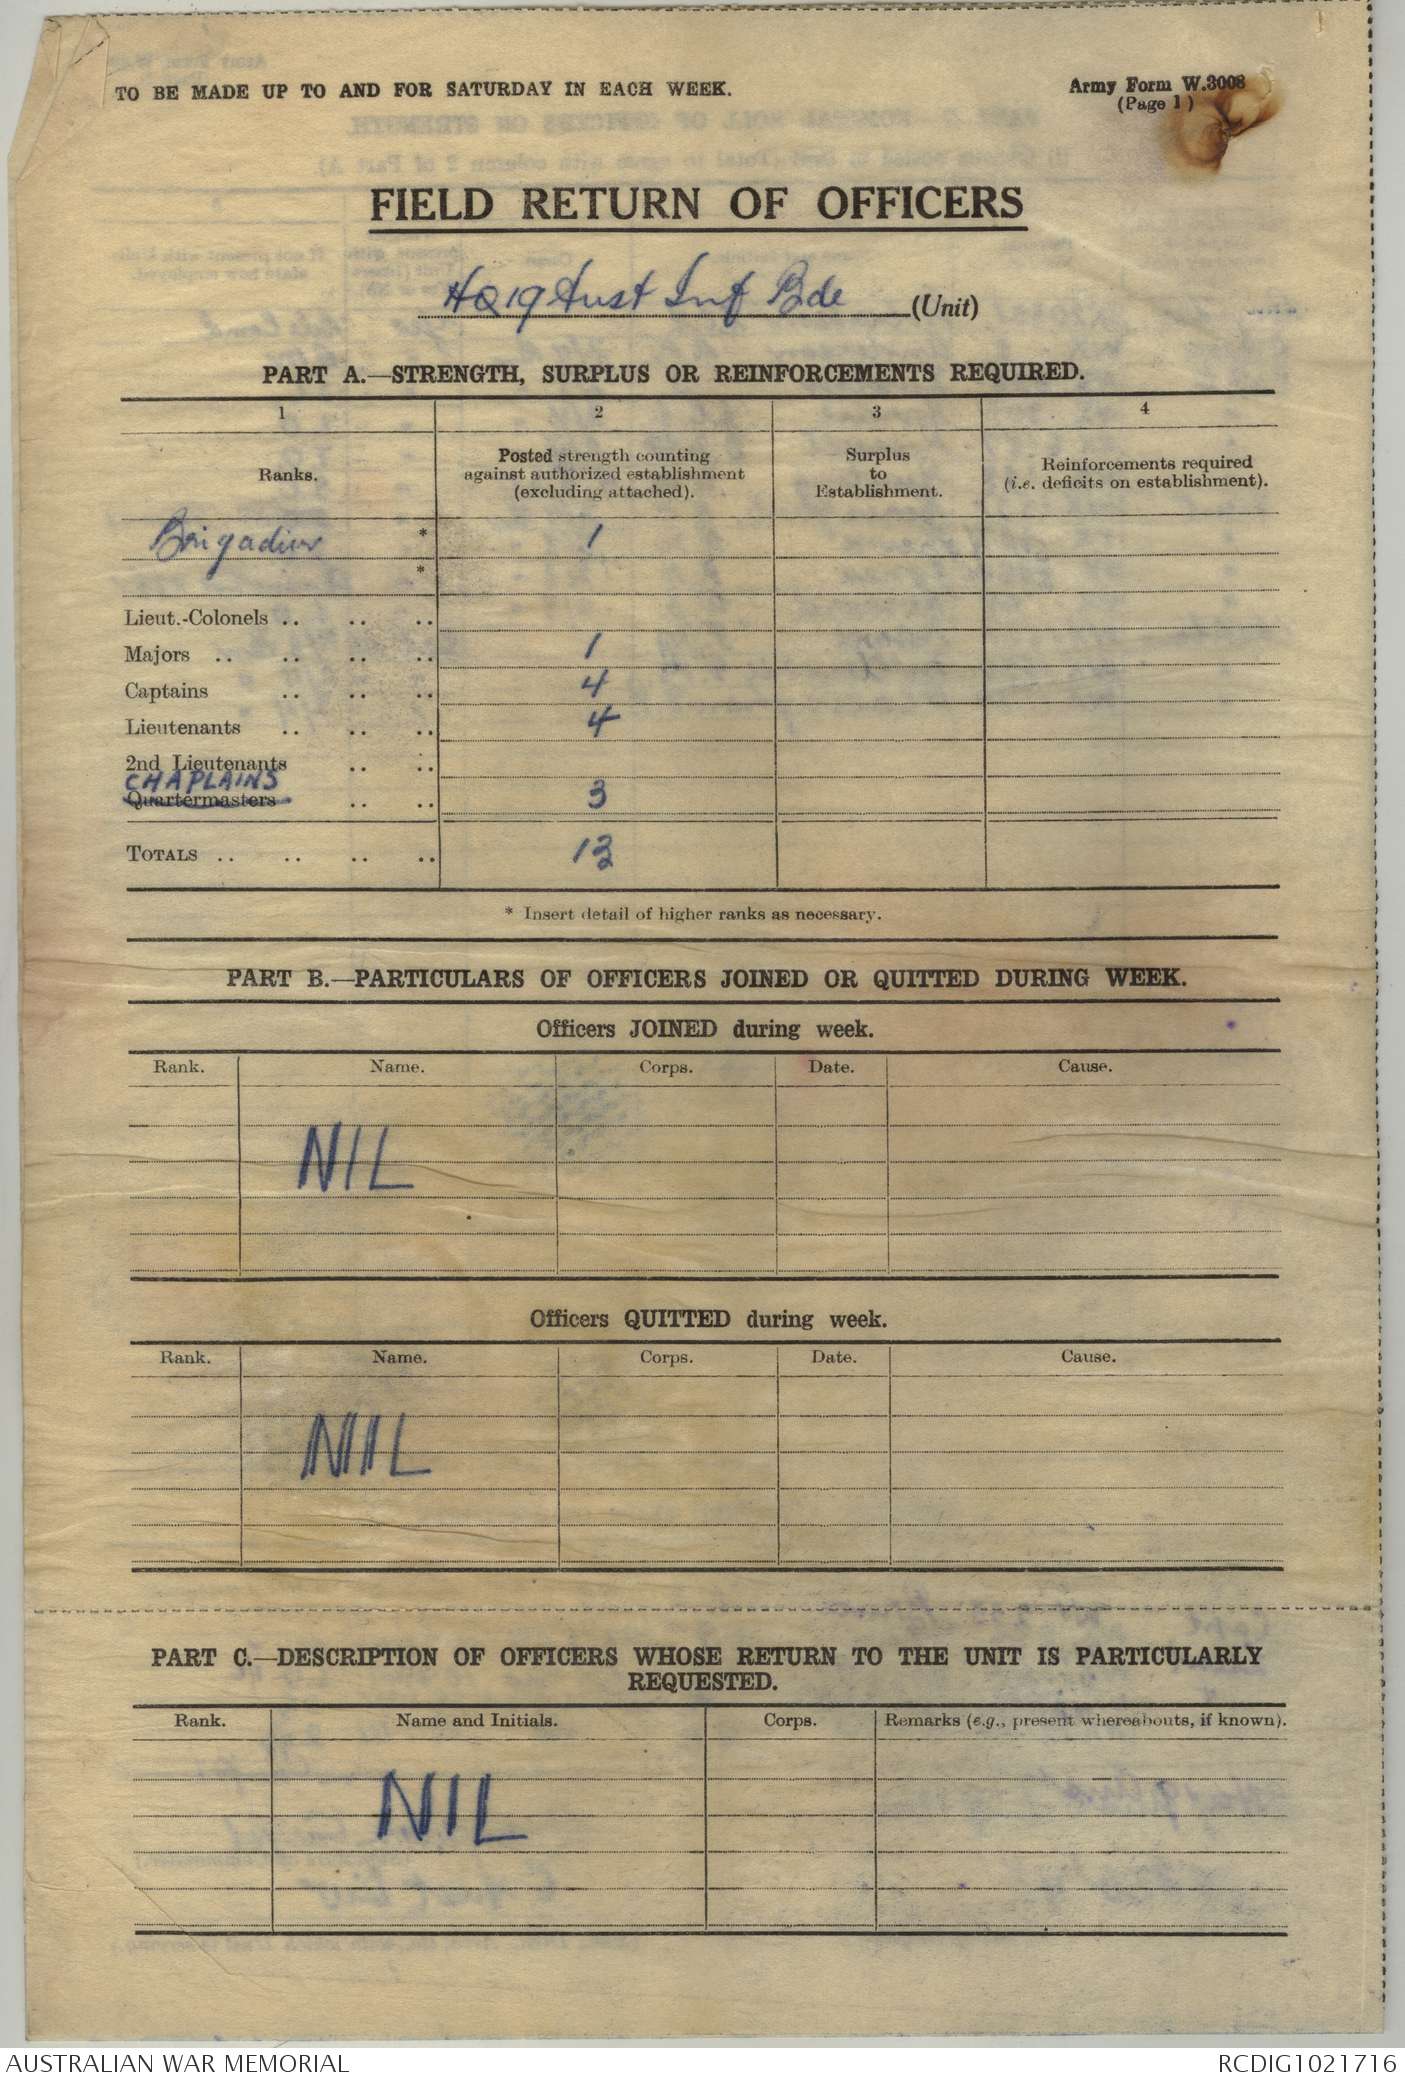 TO BE MADE UP TO AND FOR SATURDAY IN EACH WEEK.
Army Form W.3008
(Page 1)
FIELD RETURN OF OFFICERS
HQ 19 Aust Inf Bde (Unit)
PART A.—STRENGTH, SURPLUS OR REINFORCEMENTS REQUIRED.
1 2 3 4
Ranks. Posted strength counting against authorized establishment (excluding attached). Surplus to Establishment. Reinforcements required (i.e. deficits on establishment).
Brigadier * 1
*
Lieut.-Colonels .. .. ..
Majors .. .. .. .. 1
Captains .. .. .. 4
Lieutenants .. .. .. 4
2nd Lieutenants .. ..
CHAPLAINS
Quartermasters .. .. 3
TOTALS .. .. .. .. 13
* Insert detail of higher ranks as necessary.
PART B.—PARTICULARS OF OFFICERS JOINED OR QUITTED DURING WEEK.
Officers JOINED during week.
Rank. Name. Corps. Date. Cause.
NIL
Officers QUITTED during week.
Rank. Name. Corps. Date. Cause.
NIL
PART C.—DESCRIPTION OF OFFICERS WHOSE RETURN TO THE UNIT IS PARTICULARLY
REQUESTED.
Rank. Name and Initials. Corps. Remarks (e.g., present whereabouts, if known).
NIL
AUSTRALIAN WAR MEMORIAL RCDIG1021716